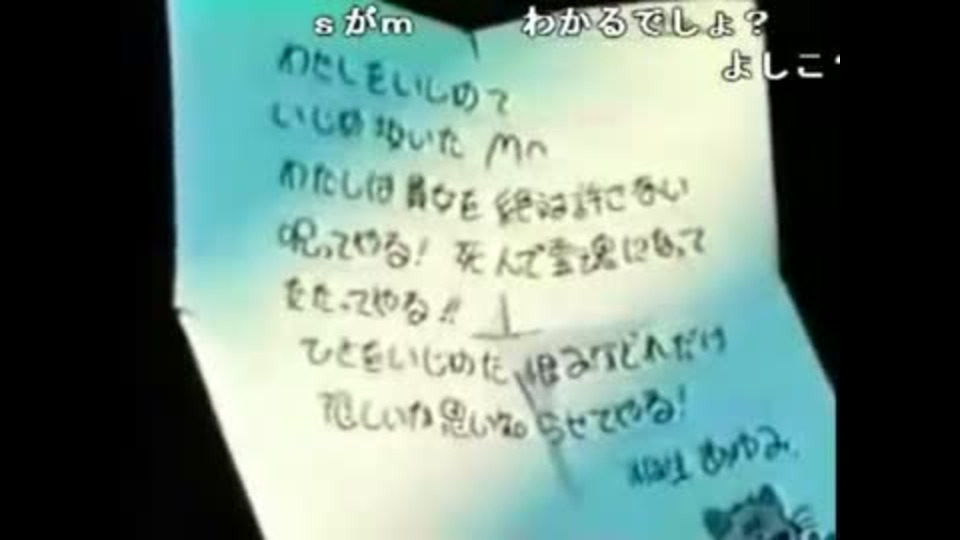 sがm わかるでしょ？
よしこ
わたしをいじめて
いじめぬいた Mへ
わたしは貴女を 絶対許さない
呪ってやる! 死んで霊魂になって
たたってやる!!
ひとをいじめた 恨みがどれだけ
恐しいか思い知らせてやる!
桐生 あゆみ